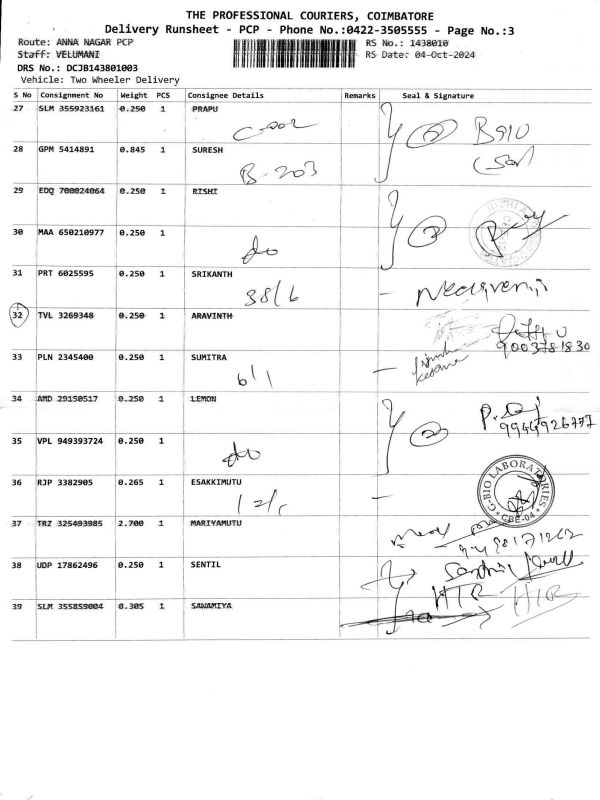 THE PROFESSIONAL COURIERS, COIMBATORE
Delivery Runsheet - PCP - Phone No.:0422-3505555 - Page No.:3
Route: ANNA NAGAR PCP
RS No.: 1438010
Staff: VELUMANI
RS Date: 04-Oct-2024
DRS No.: DCJB143801003
Vehicle: Two Wheeler Delivery
S No Consignment No Weight PCS Consignee Details Remarks Seal & Signature
27 SLM 355923161 0.250 1 PRAPU
28 GPM 5414891 0.845 1 SURESH
B-203
29 EDQ 700024064 0.250 1 RISHI
30 MAA 650210977 0.250 1
do
31 PRT 6025595 0.250 1 SRIKANTH
38/6
32 TVL 3269348 0.250 1 ARAVINTH
9003781830
33 PLN 2345400 0.250 1 SUMITRA
34 AMD 29150517 0.250 1 LEMON
35 VPL 949393724 0.250 1
do
36 RJP 3382905 0.265 1 ESAKKIMUTU
G-BIO LABORATORIES
CBE-04
37 TRZ 325493985 2.700 1 MARIYAMUTU
38 UDP 17862496 0.250 1 SENTIL
39 SLM 355859004 0.305 1 SAWAMIYA